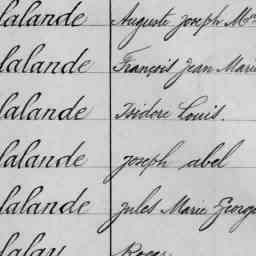 lalande Auguste Joseph M
lalande François Jean Marie
lalande Isidore Louis.
lalande Joseph abel
lalande Jules Marie George
lalau Roger